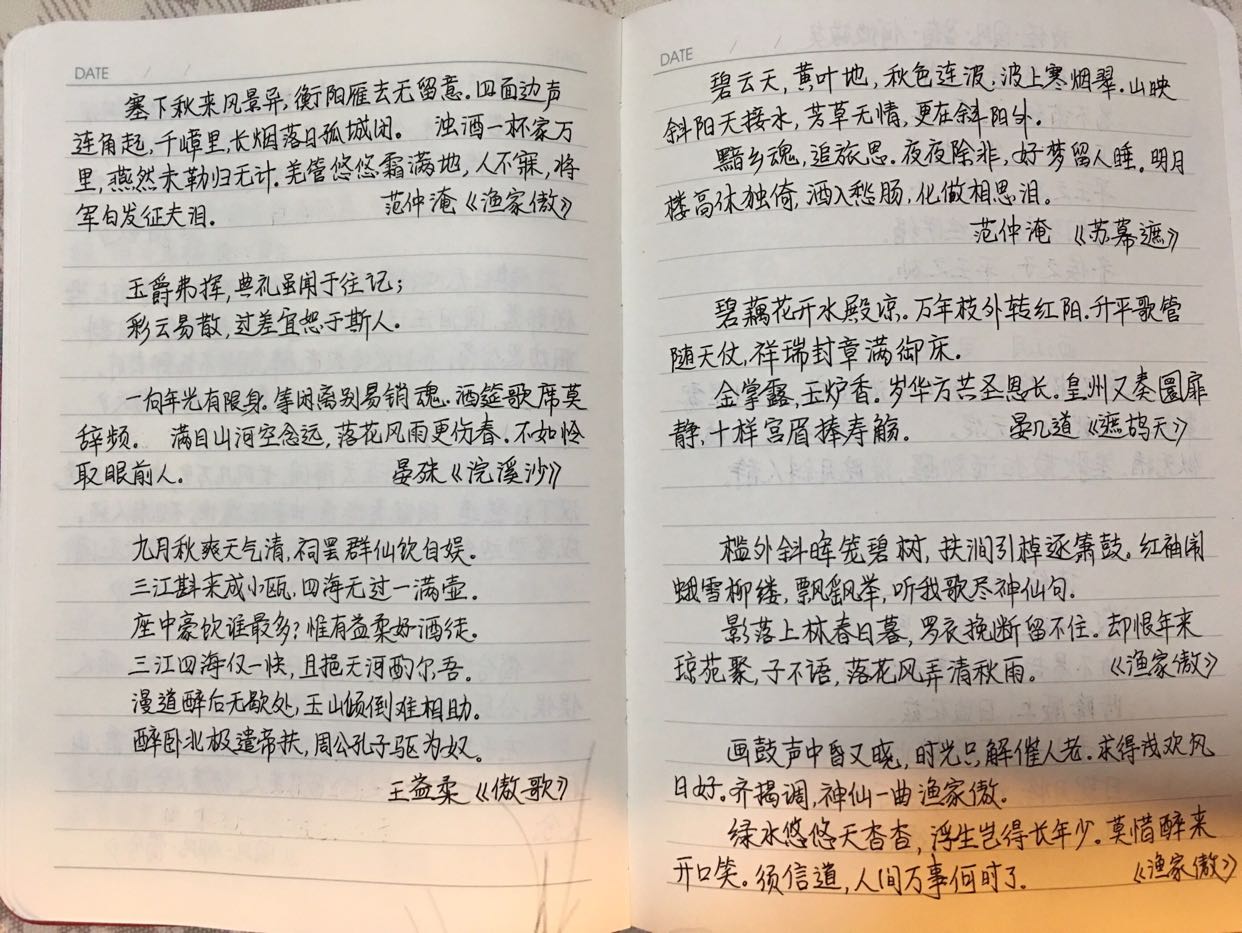 DATE / /
塞下秋来风景异,衡阳雁去无留意.四面边声
连角起,千嶂里,长烟落日孤城闭。 浊酒一杯家万
里,燕然未勒归无计.羌管悠悠霜满地,人不寐,将
军白发征夫泪。 范仲淹《渔家傲》
玉爵弗挥,典礼虽闻于往记;
彩云易散,过差宜恕于斯人.
一向年光有限身.等闲离别易销魂.酒筵歌席莫
辞频。 满目山河空念远,落花风雨更伤春.不如怜
取眼前人. 晏殊《浣溪沙》
九月秋爽天气清,祠罢群仙饮自娱.
三江斟来成小瓯,四海无过一满壶.
座中豪饮谁最多?惟有益柔好酒徒.
三江四海仅一快,且挹天河酌尔吾.
漫道醉后无歇处,玉山倾倒难相助.
醉卧北极遣帝扶,周公孔子驱为奴.
王益柔《傲歌》
DATE / /
碧云天,黄叶地,秋色连波.波上寒烟翠.山映
斜阳天接水,芳草无情,更在斜阳外.
黯乡魂,追旅思.夜夜除非,好梦留人睡.明月
楼高休独倚,酒入愁肠,化做相思泪。
范仲淹 《苏幕遮》
碧藕花开水殿凉.万年枝外转红阳.升平歌管
随天仗,祥瑞封章满御床.
金掌露,玉炉香.岁华方共圣恩长.皇州又奏圜扉
静,十样宫眉捧寿觞. 晏几道《遮鸪天》
槛外斜晖笼碧树,扶涧引棹逐箫鼓.红袖闹
蛾雪柳缕,飘飖举,听我歌尽神仙句.
影落上林春日暮,罗衣挽断留不住.却恨年来
琼苑聚,子不语,落花风弄清秋雨. 《渔家傲》
画鼓声中昏又晓,时光只解催人老.求得浅欢风
日好.齐揭调,神仙一曲渔家傲.
绿水悠悠天杳杳,浮生岂得长年少.莫惜醉来
开口笑.须信道,人间万事何时了. 《渔家傲》